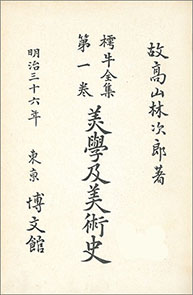 故高山林次郎著
樗牛全集
第一巻
美學及美術史
明治三十六年
東京 博文館